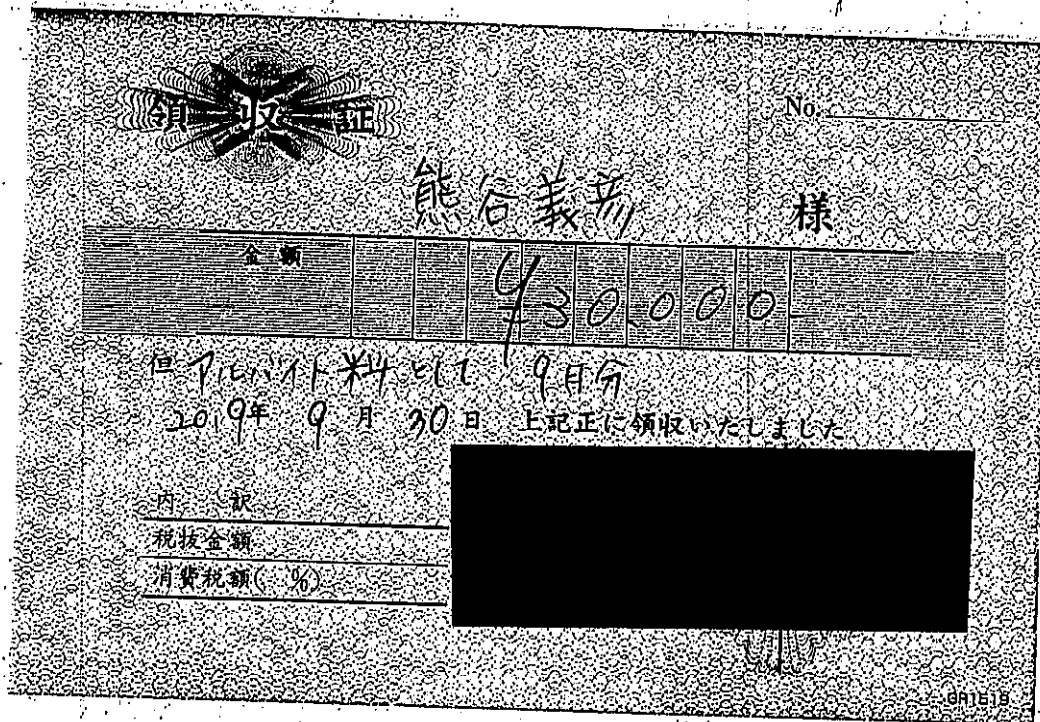 領収証
No.
熊谷義彦 様
金額 ¥30,000-
但 アルバイト料として 9月分
2019年 9月 30日 上記正に領収いたしました
内訳
税抜金額
消費税額( %)